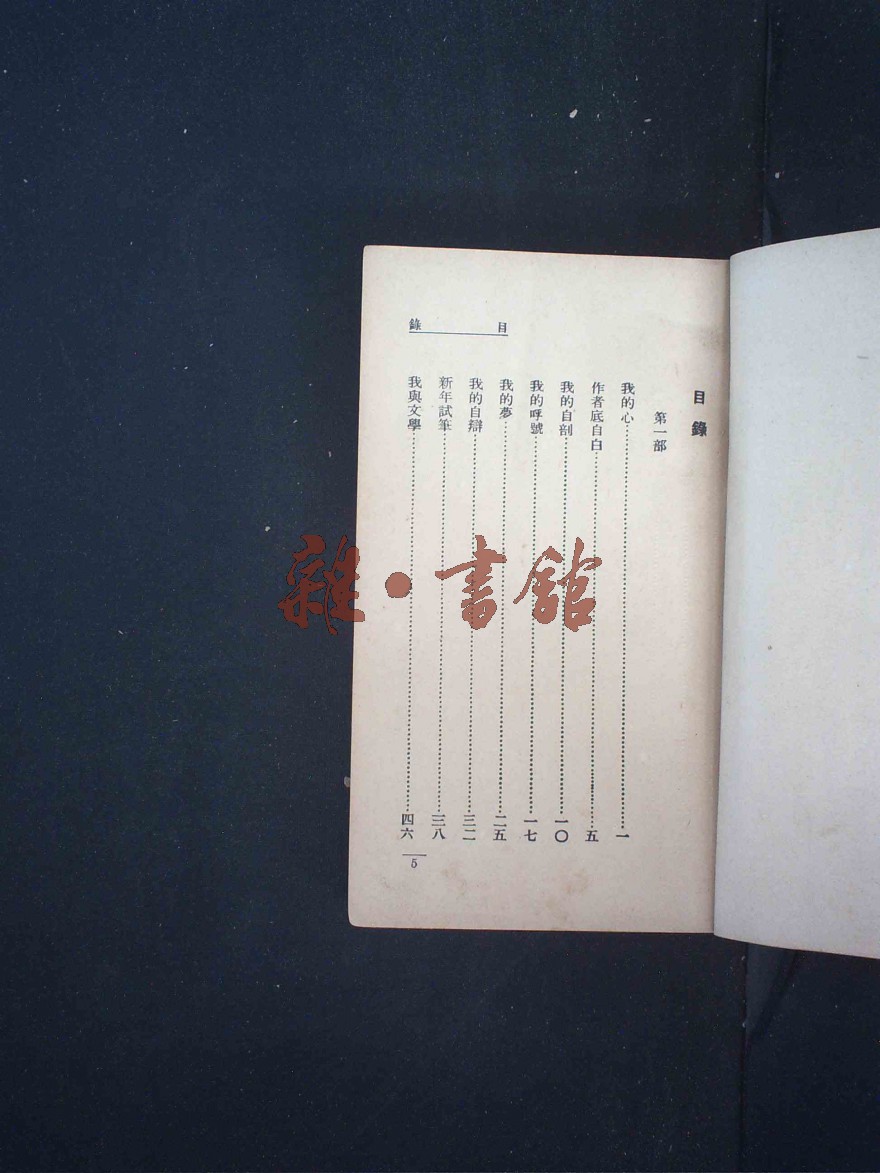 目錄
目錄
第一部
我的心……一
作者底自白……五
我的自剖……一〇
我的呼號……一七
我的夢……二五
我的自辯……三二
新年試筆……三八
我與文學……四六
5
雜·書館